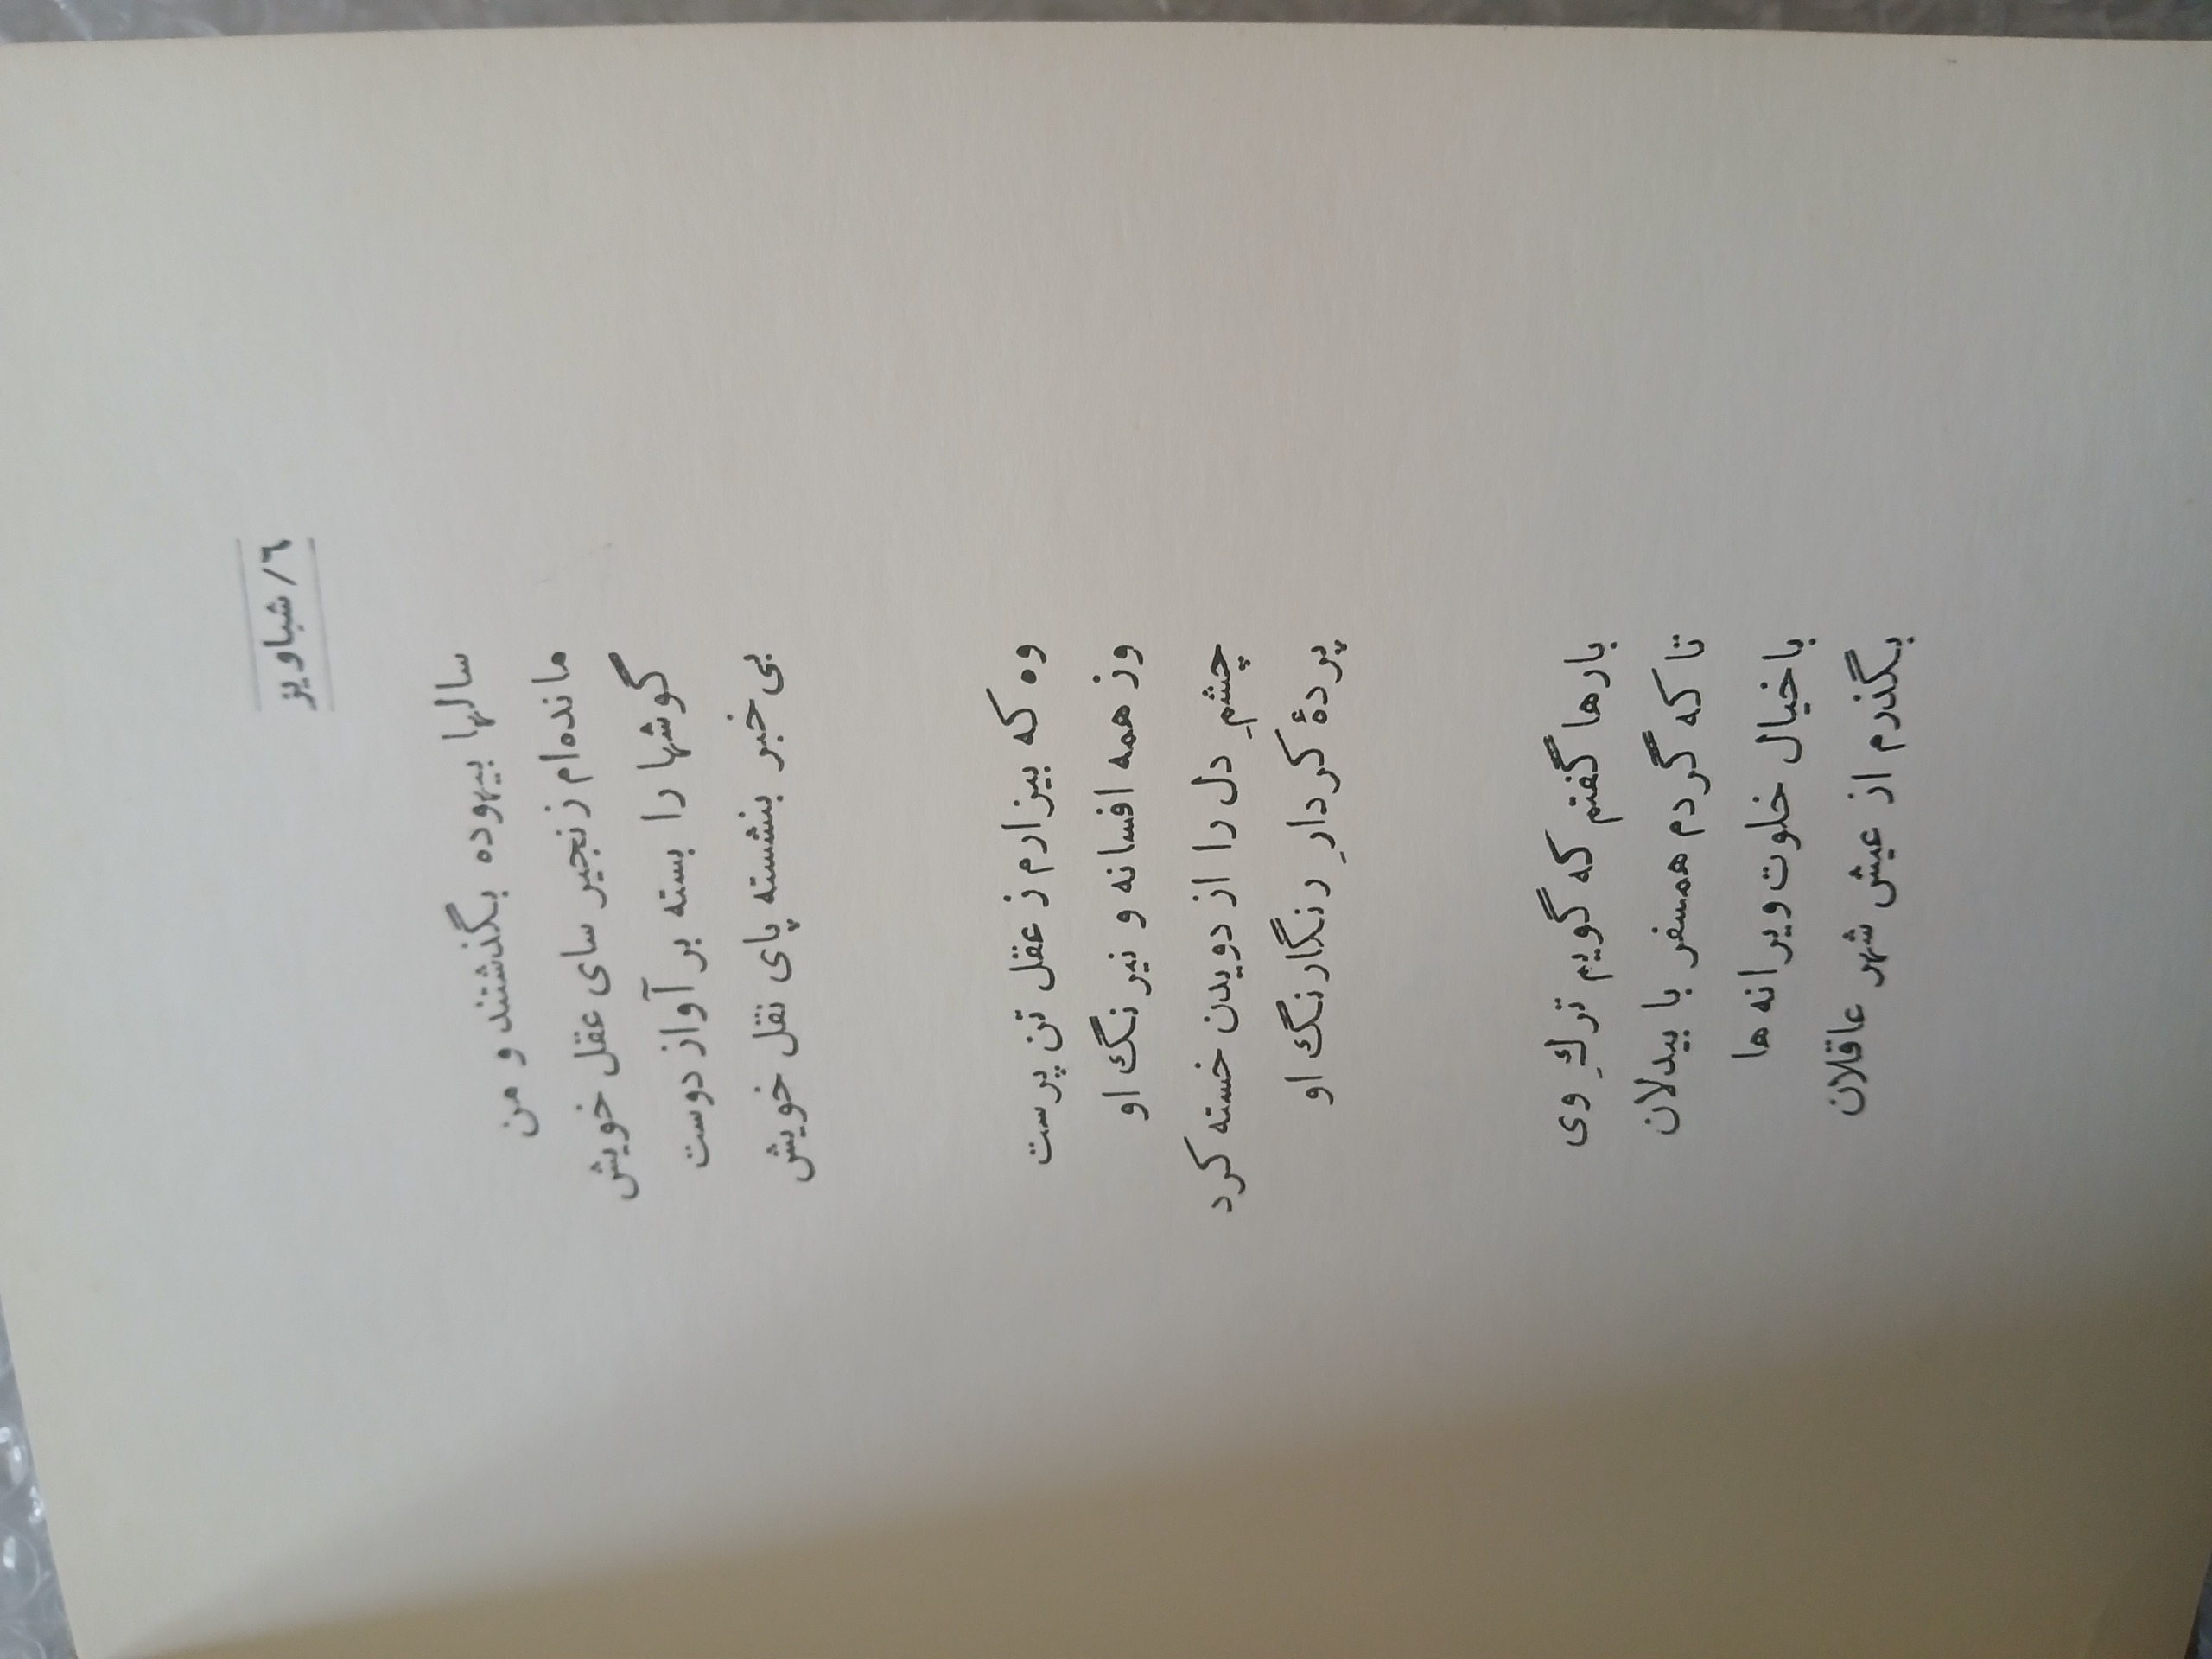 ٦/ شباویز
سالها بیهوده بگذشتند و من
مانده‌ام زنجیر سای عقل خویش
گوشها را بسته بر آواز دوست
بی خبر بنشسته پای نقل خویش
وه که بیزارم ز عقل تن پرست
وز همه افسانه و نیرنگ او
چشمِ دل را از دویدن خسته کرد
پردهٔ کردارِ رنگارنگ او
بارها گفتم که گویم تركِ وی
تا که گردم همسفر با بیدلان
با خیال خلوت ویرانه ها
بگذرم از عیش شهر عاقلان